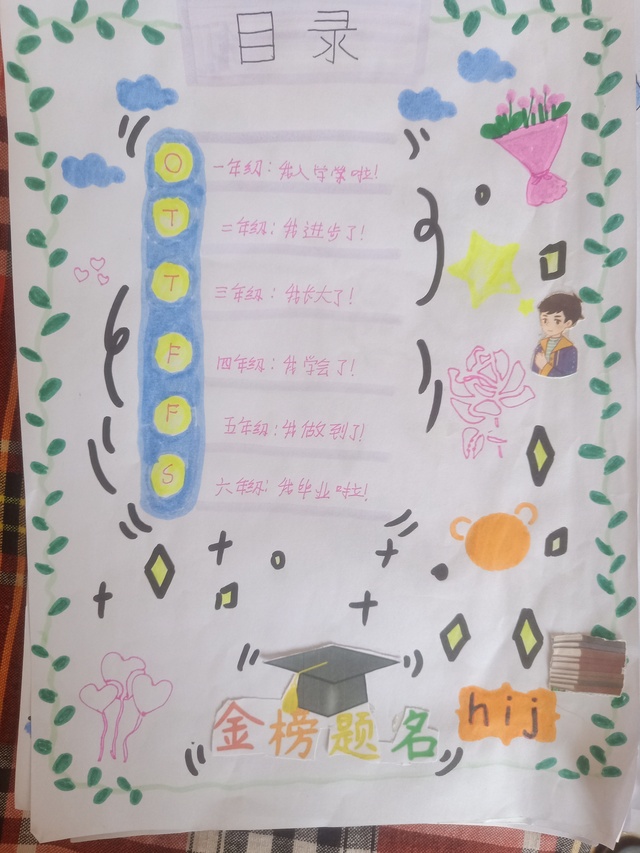 目录
O 一年级：我入学啦！
T 二年级：我进步了！
T 三年级：我长大了！
F 四年级：我学会了！
F 五年级：我做到了！
S 六年级：我毕业啦！
金榜题名
hij